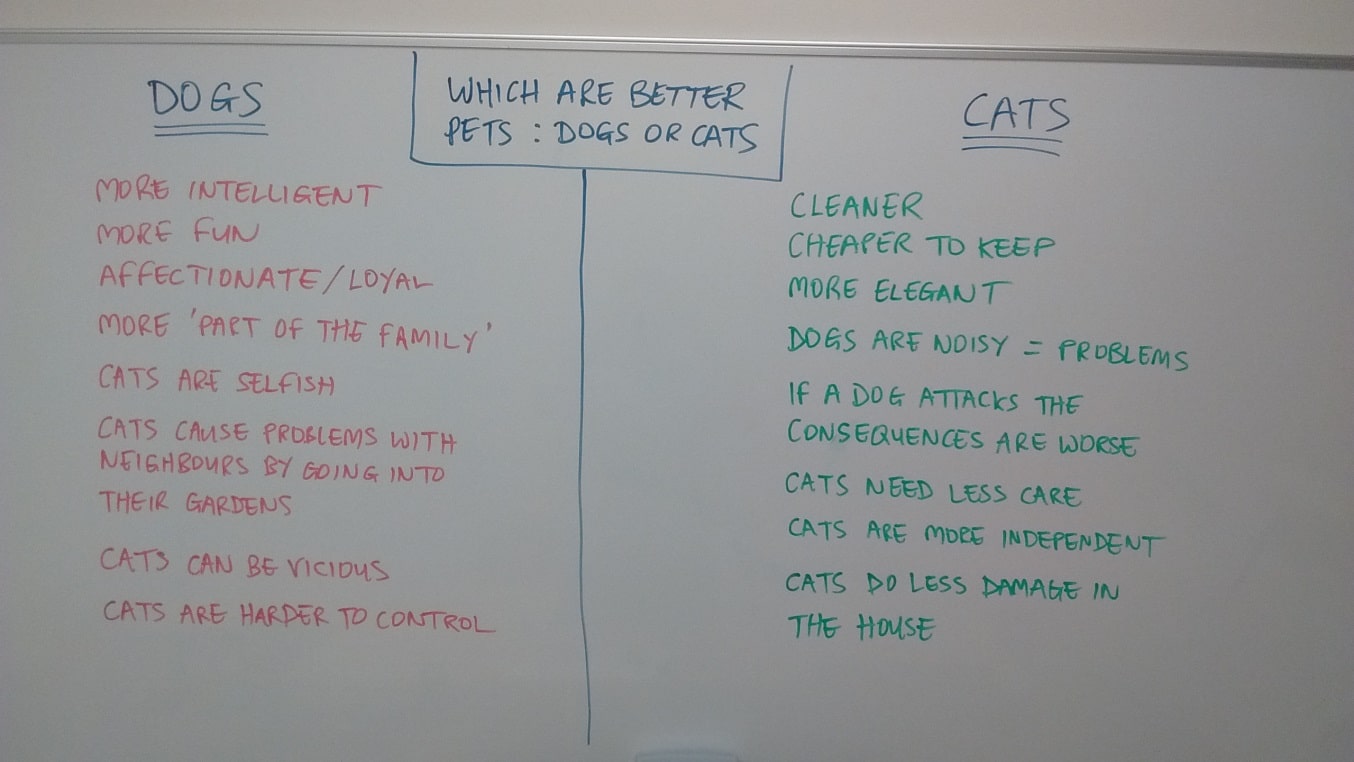 DOGS
WHICH ARE BETTER
PETS : DOGS OR CATS
CATS
MORE INTELLIGENT
MORE FUN
AFFECTIONATE/LOYAL
MORE 'PART OF THE FAMILY'
CATS ARE SELFISH
CATS CAUSE PROBLEMS WITH
NEIGHBOURS BY GOING INTO
THEIR GARDENS
CATS CAN BE VICIOUS
CATS ARE HARDER TO CONTROL
CLEANER
CHEAPER TO KEEP
MORE ELEGANT
DOGS ARE NOISY = PROBLEMS
IF A DOG ATTACKS THE
CONSEQUENCES ARE WORSE
CATS NEED LESS CARE
CATS ARE MORE INDEPENDENT
CATS DO LESS DAMAGE IN
THE HOUSE